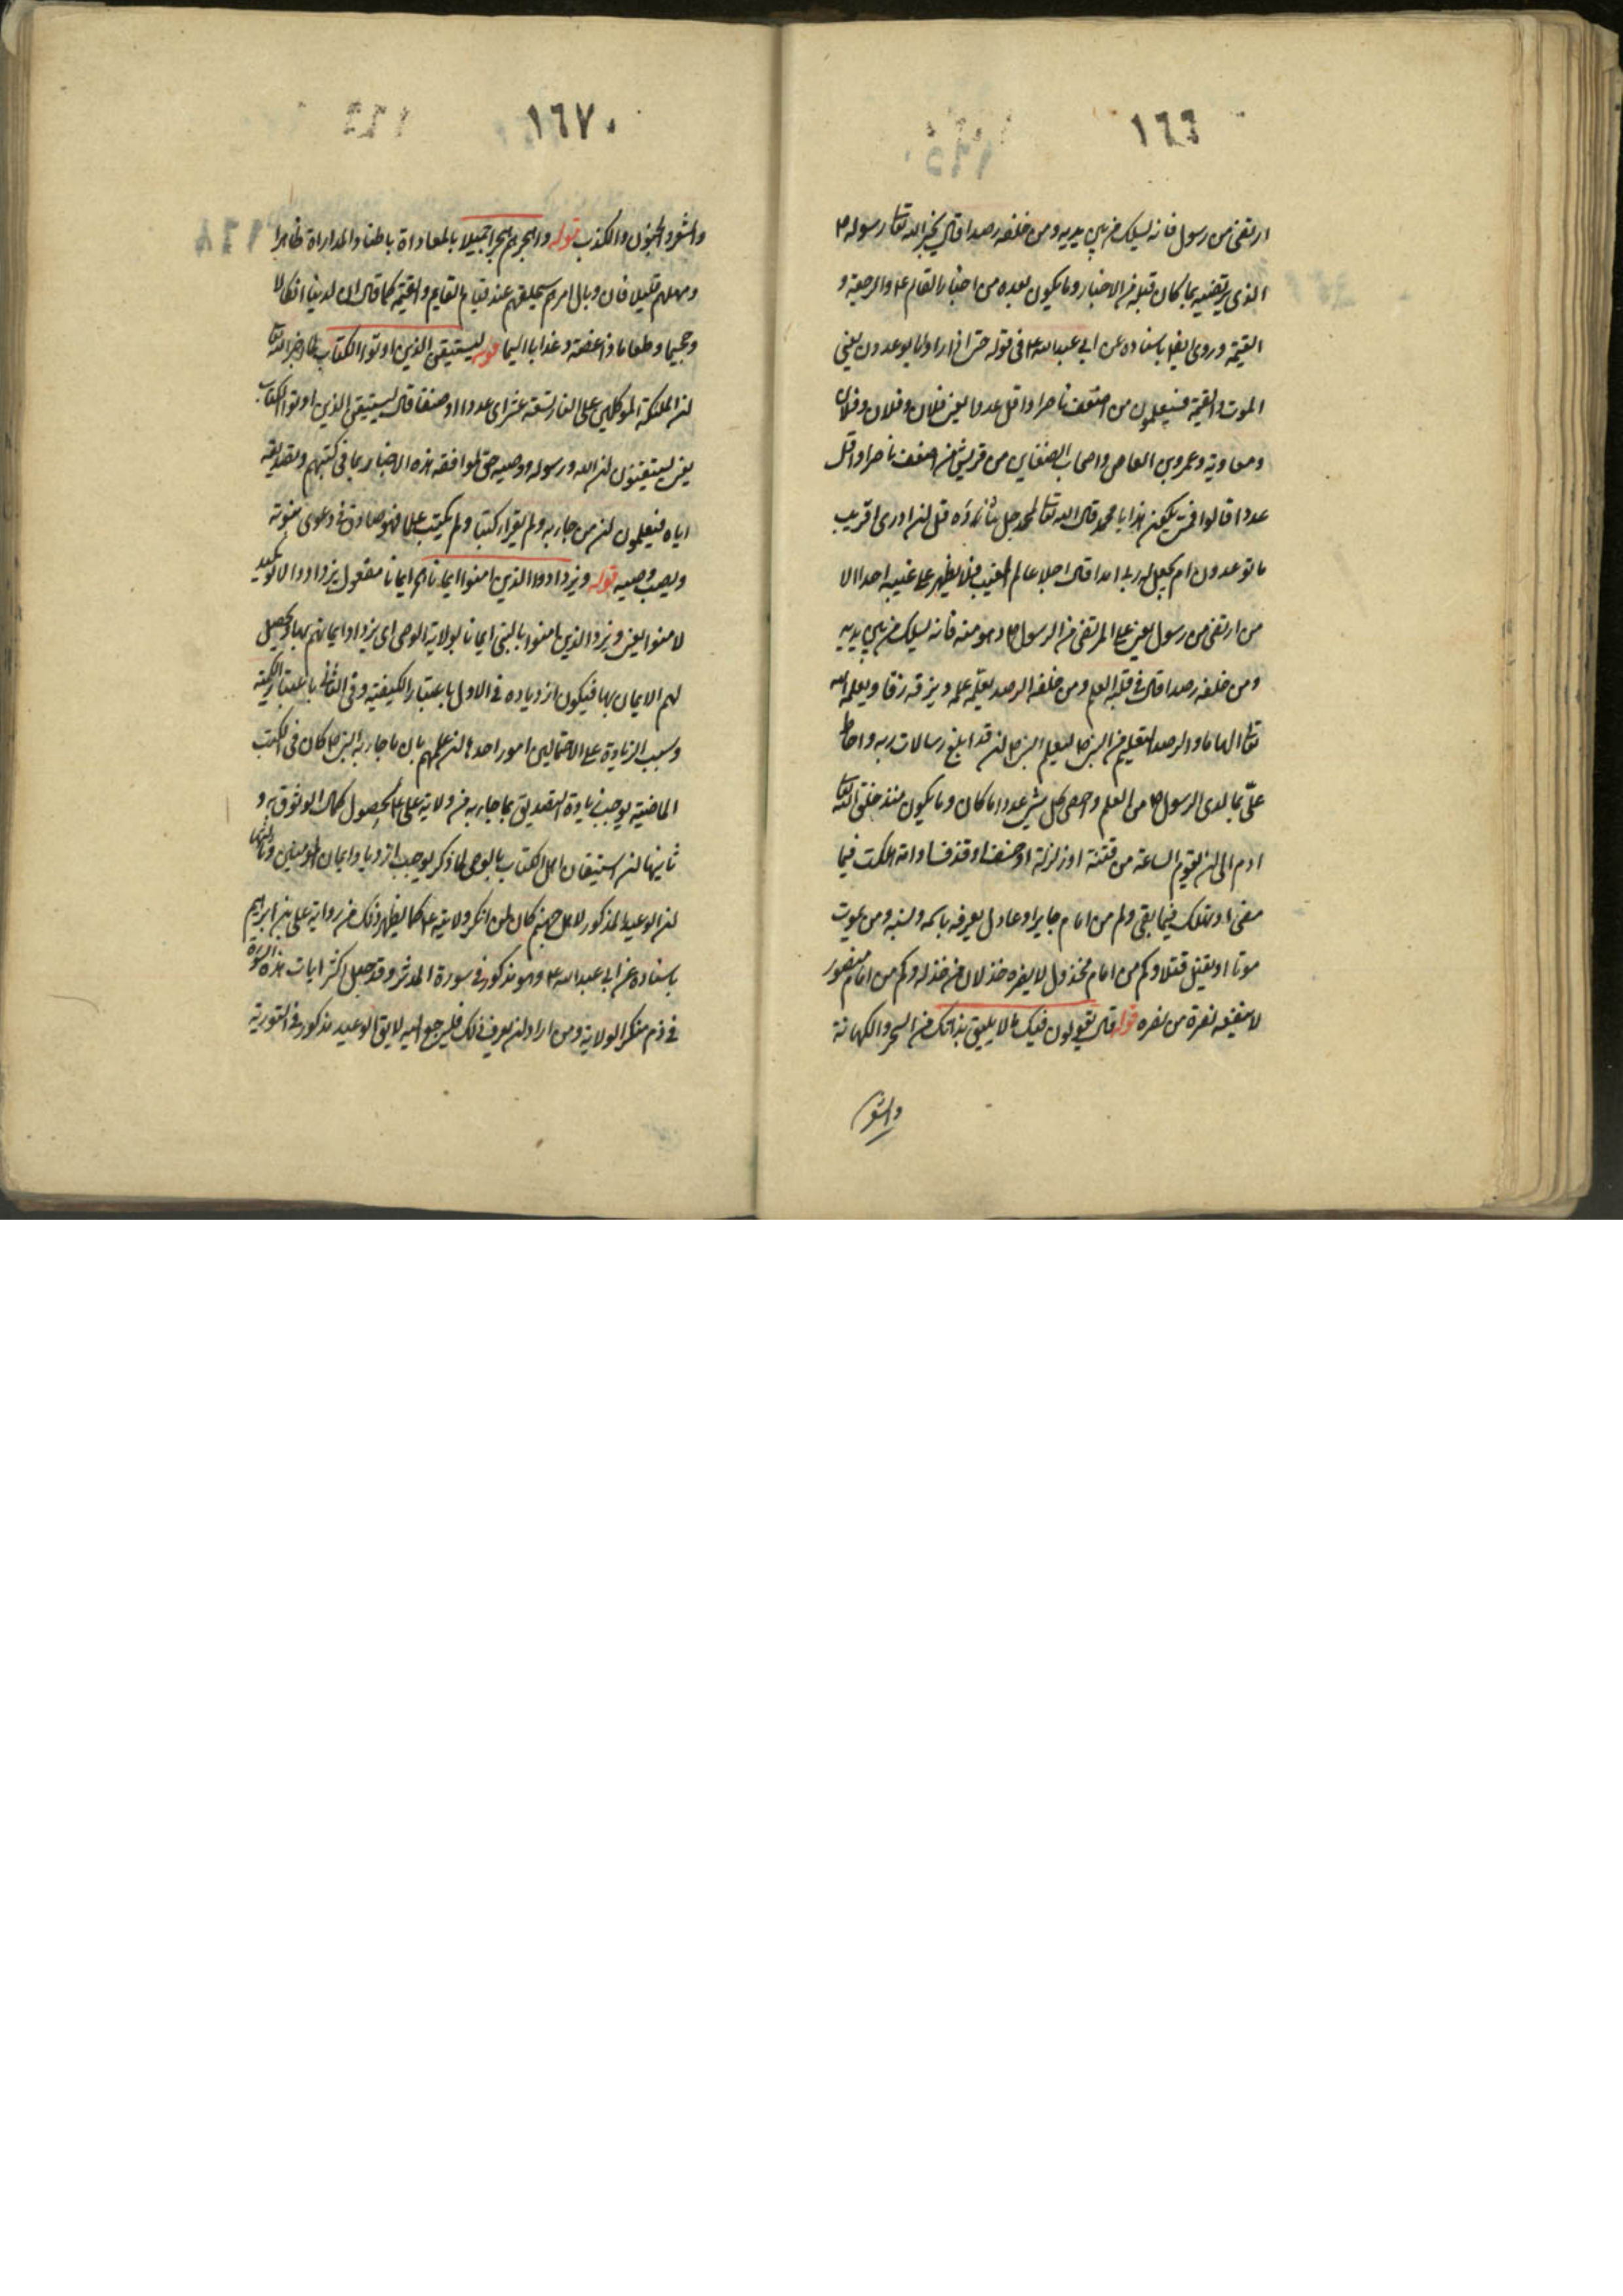 ١٦٦
ارتضى من رسول فانه يسلك من بين يديه ومن خلفه رصدا قال يخبر الله تعا رسوله ص
الذى يرتضيه بما كان قبله من الاخبار وما يكون بعده من اخبار القائم ع والرجعة و
القيمة وروى ايضا باسناده عن ابى عبد الله ع فى قوله حتى اذا راوا ما يوعدون يعنى
الموت والقيمة فسيعلمون من اضعف ناصرا واقل عددا يعنى فلان وفلان وفلان
ومعاوية وعمرو بن العاص واصحاب الضغاين من قريش من اضعف ناصرا واقل
عددا قالوا فمتى يكون هذا يا محمد قال الله تعا لمحمد جل ثناؤه قل ان ادرى اقريب
ما توعدون ام يجعل له ربى امدا قال اجلا عالم الغيب فلا يظهر على غيبه احدا الا
من ارتضى من رسول يعنى على المرتضى من الرسول ص وهو منه فانه يسلك من بين يديه
ومن خلفه رصدا قال فى قلبه العلم ومن خلفه الرصد يعلمه علمه ويزقه زقا ويعلمه الله
تعا الهاما والرصد التعليم من النبى ص ليعلم النبى ص ان قد ابلغ رسالات ربه واحاط
علىّ بما لدى الرسول ص من العلم واحصى كل شىء عددا ما كان وما يكون منذ خلق الله تعا
ادم الى ان تقوم الساعة من فتنة او زلزلة او خسف او قذف او امة هلكت فيما
مضى او تهلك فيما بقى وكم من امام جاير او عادل يعرفه باسمه ونسبه ومن يموت
موتا او يقتل قتلا وكم من امام مخذول لا يضره خذلان من خذله وكم من امام منصور
لا ينفعه نصرة من نصره قوله قال يقولون فيك ما لا يليق بذاتك من السحر والكهانة
والشعر
١٦٧
والشعر والجنون والكذب قوله واهجرهم هجرا جميلا بالمعاداة باطنا والمداراة ظاهرا
ومهلهم قليلا فان وبال امرهم سيلحقهم عند قيام القايم والقيمة كما قال ان لدينا انكالا
وجحيما وطعاما ذا غصة وعذابا اليما قوله ليستيقن الذين اوتوا الكتاب لما اخبر الله تعا
ان الملئكة الموكلين على النار تسعة عشر اى عددا او صنفا قال ليستيقن الذين اوتوا الكتاب
يعنى يستيقنون ان الله ورسوله ووصيه حق لموافقة هذه الاخبار بما فى كتبهم وتصديقه
اياه فيعلمون ان من جاء به ولم يقراء كتبا ولم يكتب علما فهو صادق فى دعوى نبوته
ونصب وصيه قوله ويزداد الذين امنوا ايمانا ايمانا مفعول يزداد والا تاكيد
لامنوا يعنى ويزد الذين امنوا بالنبى ايمانا بولاية الوصى اى يزداد ايمانهم بها ويحصل
لهم الايمان بها فيكون ازدياده فى الاول باعتبار الكيفية وفى الثانى باعتبار الكمية
وسبب الزيادة على الاحتمالين امور احدها ان علمهم بان ما جاء به النبى ص كان فى الكتب
الماضية يوجب زيادة التصديق بما جاء به من ولاية على ع لحصول كمال الوثوق به و
ثانيها ان استيقان اهل الكتاب بالوصى لما ذكر يوجب ازدياد ايمان المؤمنين وثالثها
ان الوعيد المذكور لاهل جهنم كان لمن انكر ولايته ع كما يظهر ذلك من رواية على بن ابراهيم
باسناده عن ابى عبد الله ع وهو مذكور فى سورة المدثر وقد جعل اكثر ايات هذه السورة
فى ذم منكر الولاية ومن اراد ان يعرف ذلك فليرجع اليه لايق الوعيد مذكور فى التورية